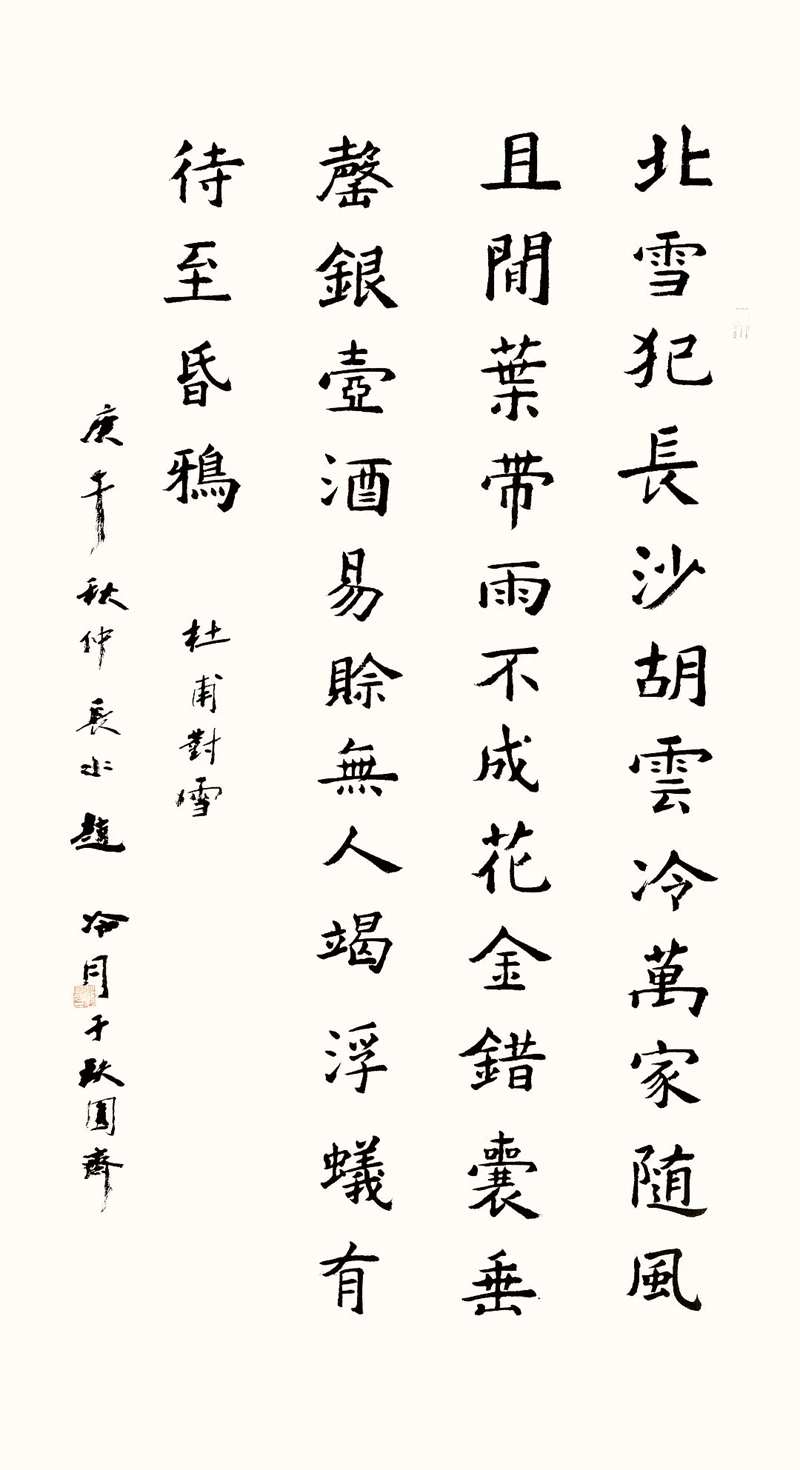 北雪犯長沙胡雲冷萬家隨風
且間葉帶雨不成花金錯囊垂
罄銀壺酒易賒無人竭浮蟻有
待至昏鴉
杜甫對雪
庚午秋仲長水趙冷月于缺圓齋